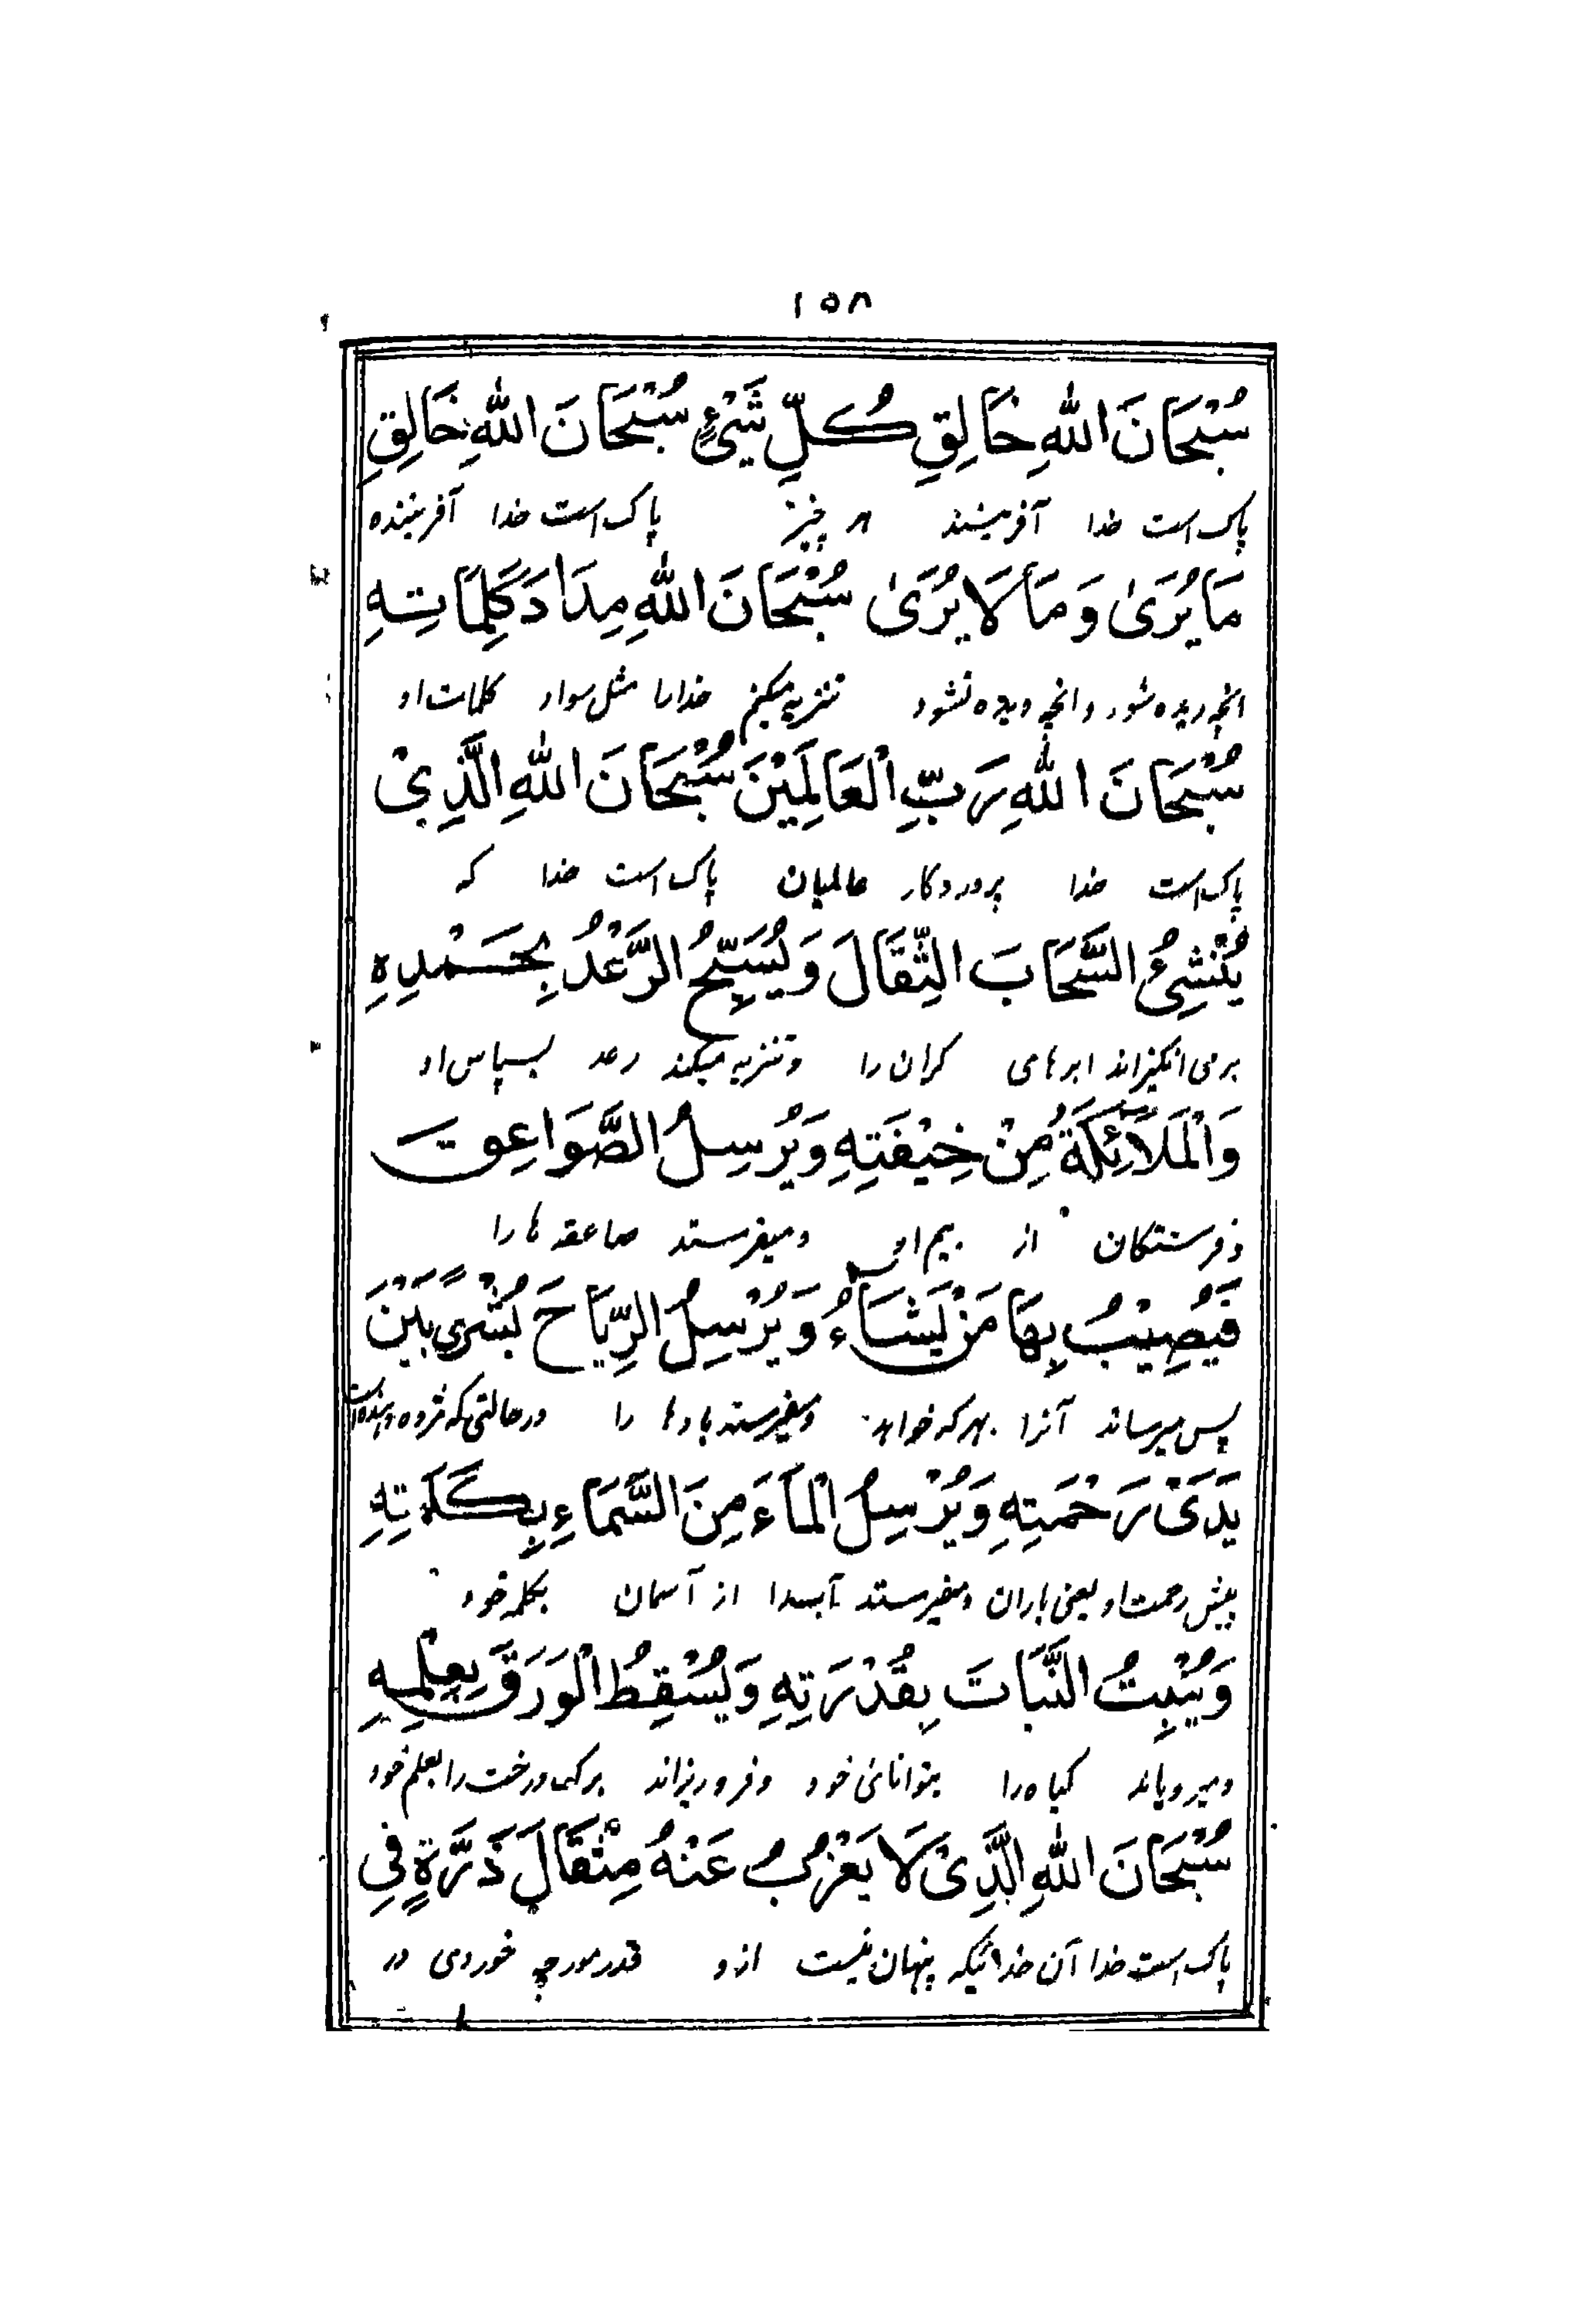 ١٥٨
سُبْحَانَ اللهِ خَالِقِ كُلِّ شَيْءٍ سُبْحَانَ اللهِ خَالِقِ
پاک است خدا آفرینند هر چیز پاک است خدا آفریننده
مَا يُرَىٰ وَ مَا لَا يُرَىٰ سُبْحَانَ اللهِ مِدَادَ كَلِمَاتِهِ
انچه دیده شود و انچه دیده نشود تنزیه میکنم خدا را مثل سواد کلمات او
سُبْحَانَ اللهِ رَبِّ الْعَالَمِيْنَ سُبْحَانَ اللهِ الَّذِيْ
پاک است خدا پروردکار عالمیان پاک است خدا که
يُنْشِئُ السَّحَابَ الثِّقَالَ وَ يُسَبِّحُ الرَّعْدُ بِحَمْدِهِ
برمی انکیزاند ابرهای کران را و تنزیه میکند رعد بسپاس او
وَالْمَلَائِكَةُ مِنْ خِيْفَتِهِ وَ يُرْسِلُ الصَّوَاعِقَ
و فرستکان از بیم او و میفرستد صاعقه ها را
فَيُصِيْبُ بِهَا مَنْ يَشَاءُ وَ يُرْسِلُ الرِّيَاحَ بُشْرًى بَيْنَ
پس میرساند آنرا بهر که خواهد و میفرستد بادها را در حالتی که مژده دهنده است
يَدَىْ رَحْمَتِهِ وَ يُرْسِلُ الْمَآءَ مِنَ السَّمَاءِ بِكَلِمَتِهِ
پیش رحمت او یعنی باران و میفرستد آب را از آسمان بکلمه خود
وَ يُنْبِتُ النَّبَاتَ بِقُدْرَتِهِ وَ يُسْقِطُ الْوَرَقَ بِعِلْمِهِ
و میرویاند کیاه را بتوانائی خود و فرو ریزاند برک درخت را بعلم خود
سُبْحَانَ اللهِ الَّذِىْ لَا يَعْزُبُ عَنْهُ مِثْقَالَ ذَرَّةٍ فِي
پاک است خدا آن خدائیکه پنهان نیست ازو قدر مورچه خوردی در